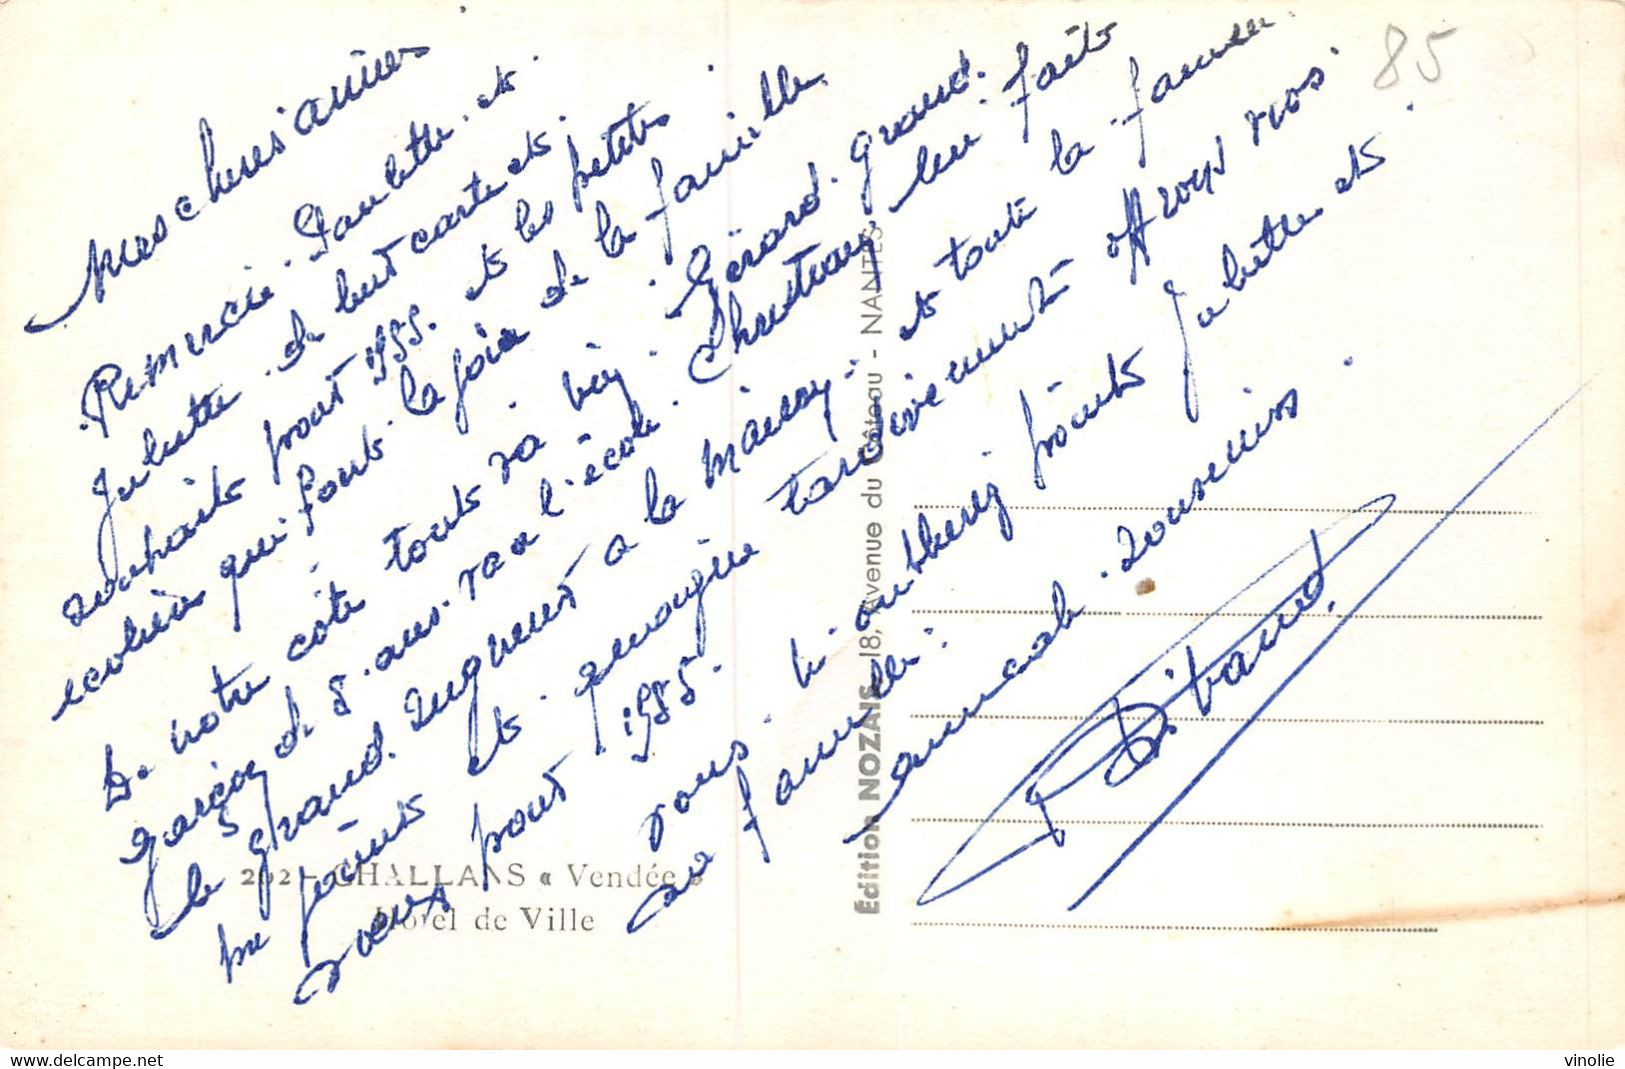 Mes chères amies
Remercie. Paulette. et.
Juliette. de leur carte et.
souhaits pour 1955. et les petits
ecoliers qui font. la joie de la famille
De notre côté tout va bien. Gérard. grand.
garçon de 8. ans. va a l'école. Christian, leu. faits
le grand. Seigneur a la maison. et toute la famille.
me joints et. quoique tardivement offrons nos.
voeux pour 1955.
vous. Juliette et
au
famille.
amicale. souvenirs.
85
202 - CHALLANS « Vendée »
Hôtel de Ville
Édition NOZAIS, 18, Avenue du Côteau - NANTES
https://www.delcampe.net
vinolie